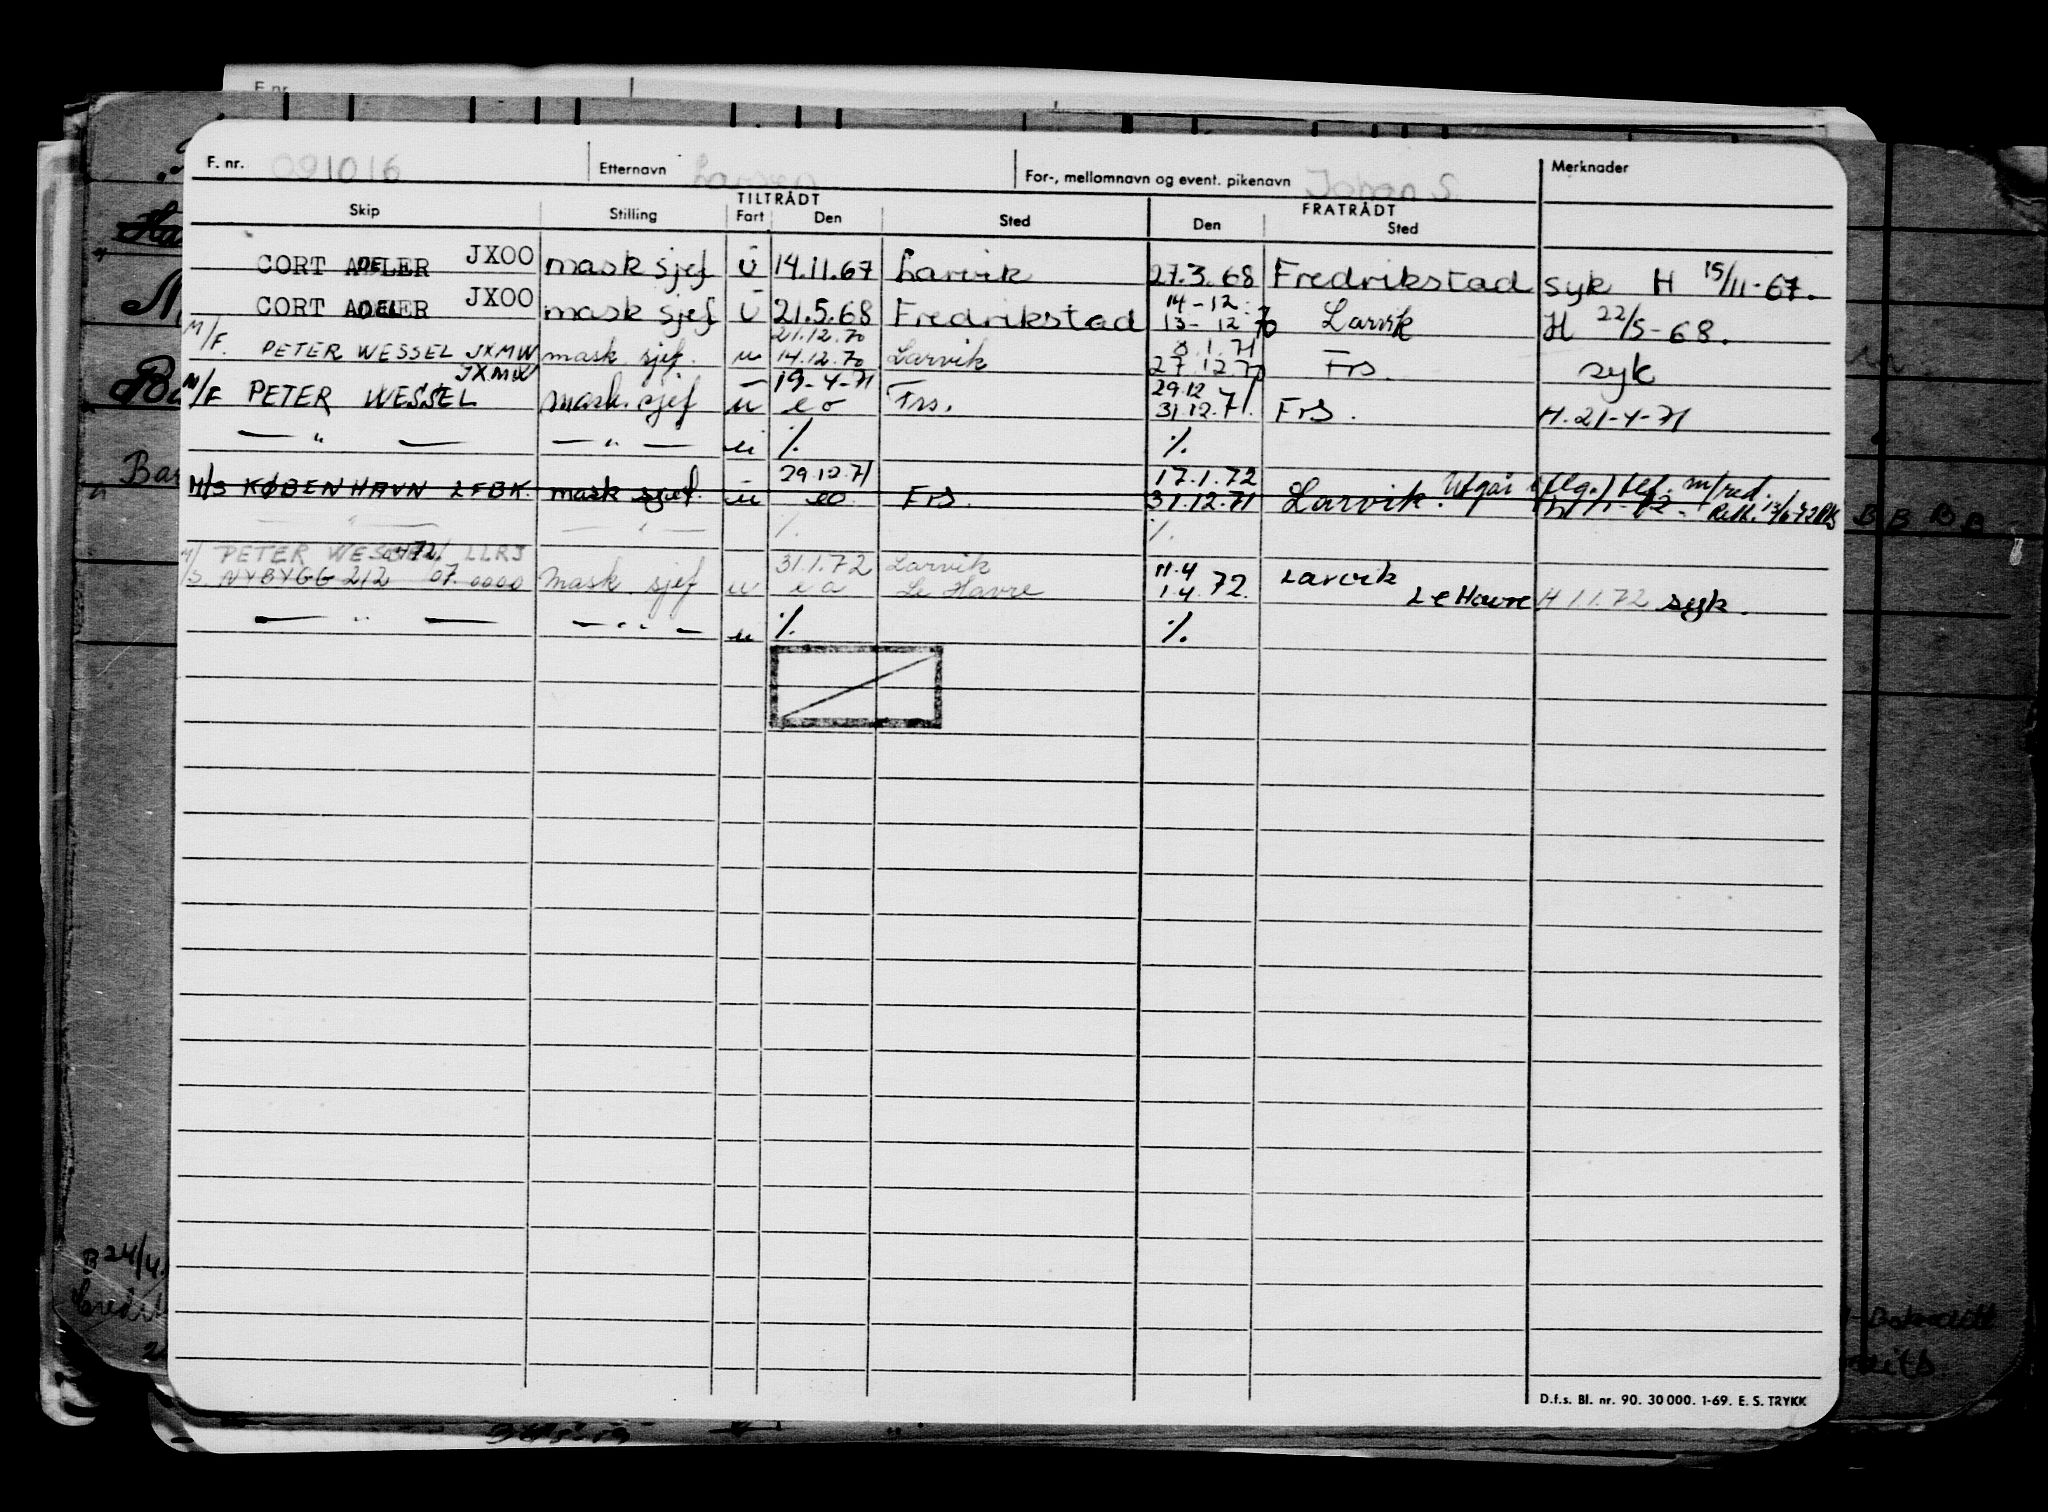 F. nr. 091016 Etternavn Larsen For-, mellomnavn og event. pikenavn Johan S. Merknader
TILTRÅDT FRATRÅDT
Skip Stilling Fart Den Sted Den Sted
CORT ADELER JXOO mask sjef u 14.11.67 Larvik 27.3.68 Fredrikstad syk H 15/11-67.
CORT ADELER JXOO mask sjef u 21.5.68 Fredrikstad 14-12 13-12 70 Larvik H 22/5-68.
21.12.70 8.1.71
M/F. PETER WESSEL JXMW mask. sjef. u 14.12.70 Larvik 27.12.70 Frs. syk
JXMW 19-4-71 29.12
M/F PETER WESSEL mask. sjef u eo Frs. 31.12.71. Frs. H.21-4-71
— " — — " — u % %
29.12.71 17.1.72 Utgår
M/S KØBENHAVN LFBK. mask sjef. u eo Frs. 31.12.71 Larvik. tlf. m/red.
— " — — " — % %
M/S PETER WESSEL LLRJ 31.1.72 Larvik 11.4 Larvik
NYBYGG 212 07.0000 Mask. sjef u ea Le Havre 1.4.72. Le Havre H 1.1.72 syk.
— " — — " — u % %
D.f.s. Bl. nr. 90. 30 000. 1-69. E. S. TRYKK